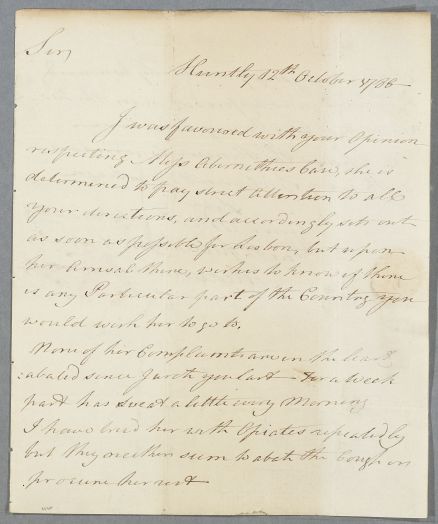 Sir,
Huntly 12th October 1786
I was favoured with your Opinion
respecting Miss Abernethies Case, she is
determined to pay strict Attention to all
your directions, and accordingly sets out
as soon as possible for Lisbon, but upon
her Arrival there, wishes to know if there
is any Particular part of the Country you
would wish her to go to.
None of her Complaints are in the least
abated since I wrote you last - For a week
past has sweat a little every Morning
I have tried her with Opiates repeatedly
but they neither seem to abate the Cough or
procure her rest